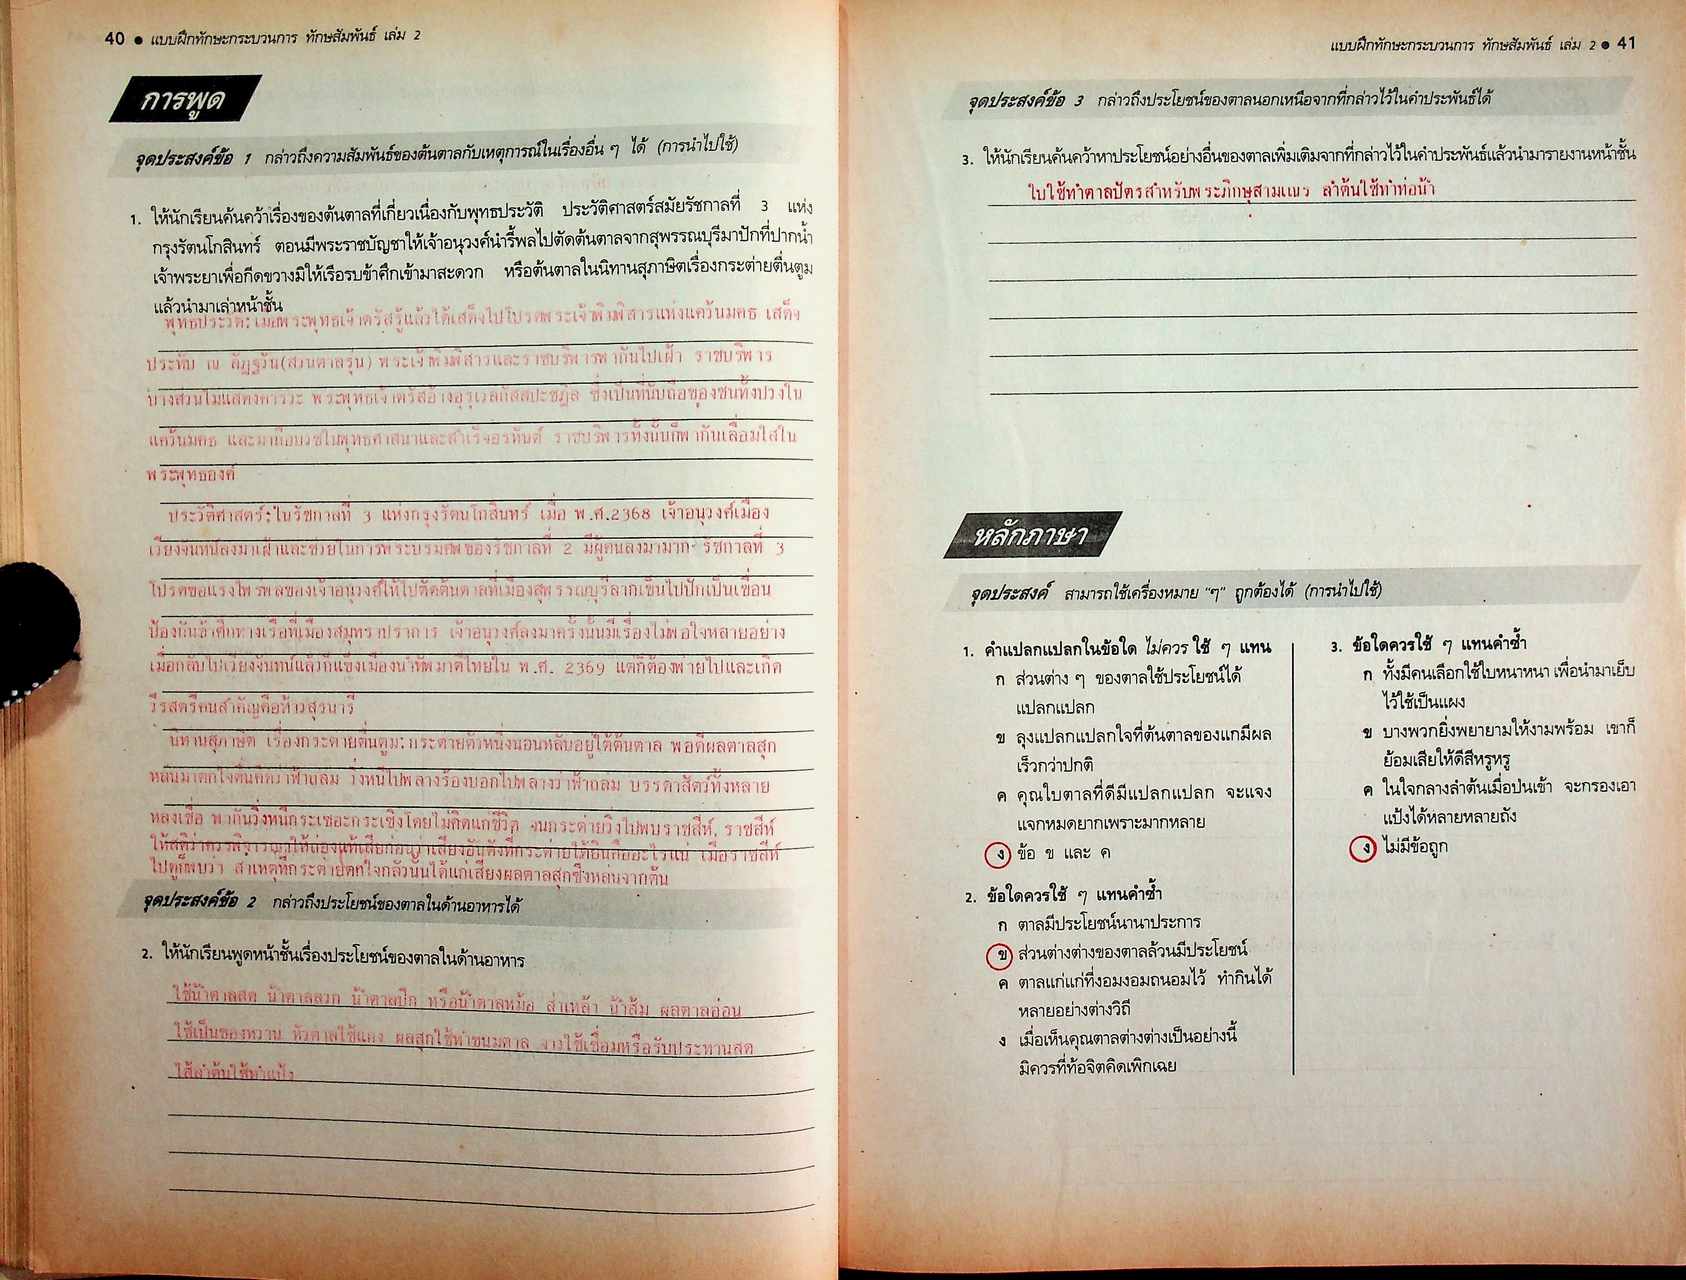 40 ● แบบฝึกทักษะกระบวนการ ทักษสัมพันธ์ เล่ม 2
การพูด
จุดประสงค์ข้อ 1 กล่าวถึงความสัมพันธ์ของต้นตาลกับเหตุการณ์ในเรื่องอื่น ๆ ได้ (การนำไปใช้)
1. ให้นักเรียนค้นคว้าเรื่องของต้นตาลที่เกี่ยวเนื่องกับพุทธประวัติ ประวัติศาสตร์สมัยรัชกาลที่ 3 แห่ง
กรุงรัตนโกสินทร์ ตอนมีพระราชบัญชาให้เจ้าอนุวงศ์นำรี้พลไปตัดต้นตาลจากสุพรรณบุรีมาปักที่ปากน้ำ
เจ้าพระยาเพื่อกีดขวางมิให้เรือรบข้าศึกเข้ามาสะดวก หรือต้นตาลในนิทานสุภาษิตเรื่องกระต่ายตื่นตูม
แล้วนำมาเล่าหน้าชั้น
พุทธประวัติ: เมื่อพระพุทธเจ้าตรัสรู้แล้วได้เสด็จไปโปรดพระเจ้าพิมพิสารแห่งแคว้นมคธ เสด็จ
ประทับ ณ ลัฏฐวัน(สวนตาลรุ่น) พระเจ้าพิมพิสารและราชบริพารพากันไปเฝ้า ราชบริพาร
บางส่วนไม่แสดงคารวะ พระพุทธเจ้าตรัสอ้างอุรุเวลกัสสปะชฎิล ซึ่งเป็นที่นับถือของชนทั้งปวงใน
แคว้นมคธ และมาถือบวชในพุทธศาสนาและสำเร็จอรหันต์ ราชบริพารทั้งนั้นก็พากันเลื่อมใสใน
พระพุทธองค์
ประวัติศาสตร์: ในรัชกาลที่ 3 แห่งกรุงรัตนโกสินทร์ เมื่อ พ.ศ.2368 เจ้าอนุวงศ์เมือง
เวียงจันทน์ลงมาเฝ้าและช่วยในการพระบรมศพของรัชกาลที่ 2 มีผู้คนลงมามาก รัชกาลที่ 3
โปรดขอแรงไพร่พลของเจ้าอนุวงศ์ให้ไปตัดต้นตาลที่เมืองสุพรรณบุรีลากเข็นไปปักเป็นเขื่อน
ป้องกันข้าศึกทางเรือที่เมืองสมุทรปราการ เจ้าอนุวงศ์ลงมาครั้งนั้นมีเรื่องไม่พอใจหลายอย่าง
เมื่อกลับไปเวียงจันทน์แล้วก็แข็งเมืองนำทัพมาตีไทยใน พ.ศ. 2369 แต่ก็ต้องพ่ายไปและเกิด
วีรสตรีคนสำคัญคือท้าวสุรนารี
นิทานสุภาษิต เรื่องกระต่ายตื่นตูม: กระต่ายตัวหนึ่งนอนหลับอยู่ใต้ต้นตาล พอดีผลตาลสุก
หล่นมาตกใจตื่นคิดว่าฟ้าถล่ม วิ่งหนีไปพลางร้องบอกไปพลางว่าฟ้าถล่ม บรรดาสัตว์ทั้งหลาย
หลงเชื่อ พากันวิ่งหนีกระเซอะกระเซิงโดยไม่คิดแก่ชีวิต จนกระต่ายวิ่งไปพบราชสีห์, ราชสีห์
ให้สติว่าควรพิจารณาให้ถ่องแท้เสียก่อนว่าเสียงอันดังที่กระต่ายได้ยินคืออะไรแน่ เมื่อราชสีห์
ไปดูก็พบว่า สาเหตุที่กระต่ายตกใจกลัวนั้นได้แก่เสียงผลตาลสุกซึ่งหล่นจากต้น
จุดประสงค์ข้อ 2 กล่าวถึงประโยชน์ของตาลในด้านอาหารได้
2. ให้นักเรียนพูดหน้าชั้นเรื่องประโยชน์ของตาลในด้านอาหาร
ใช้น้ำตาลสด น้ำตาลลวก น้ำตาลปึก หรือน้ำตาลหม้อ ส่าเหล้า น้ำส้ม ผลตาลอ่อน
ใช้เป็นของหวาน หัวตาลใช้แกง ผลสุกใช้ทำขนมตาล จาวใช้เชื่อมหรือรับประทานสด
ไส้ลำต้นใช้ทำแป้ง
แบบฝึกทักษะกระบวนการ ทักษสัมพันธ์ เล่ม 2 ● 41
จุดประสงค์ข้อ 3 กล่าวถึงประโยชน์ของตาลนอกเหนือจากที่กล่าวไว้ในคำประพันธ์ได้
3. ให้นักเรียนค้นคว้าหาประโยชน์อย่างอื่นของตาลเพิ่มเติมจากที่กล่าวไว้ในคำประพันธ์แล้วนำมารายงานหน้าชั้น
ใบใช้ทำตาลปัตรสำหรับพระภิกษุสามเณร ลำต้นใช้ทำท่อน้ำ
หลักภาษา
จุดประสงค์ สามารถใช้เครื่องหมาย "ๆ" ถูกต้องได้ (การนำไปใช้)
1. คำแปลกแปลกในข้อใด ไม่ควร ใช้ ๆ แทน
ก ส่วนต่าง ๆ ของตาลใช้ประโยชน์ได้
แปลกแปลก
ข ลุงแปลกแปลกใจที่ต้นตาลของแกมีผล
เร็วกว่าปกติ
ค คุณใบตาลที่ดีมีแปลกแปลก จะแจง
แจกหมดยากเพราะมากหลาย
ง ข้อ ข และ ค
2. ข้อใดควรใช้ ๆ แทนคำซ้ำ
ก ตาลมีประโยชน์นานาประการ
ข ส่วนต่างต่างของตาลล้วนมีประโยชน์
ค ตาลแก่แก่ที่งอมงอมถนอมไว้ ทำกินได้
หลายอย่างต่างวิถี
ง เมื่อเห็นคุณตาลต่างต่างเป็นอย่างนี้
มิควรที่ท้อจิตคิดเพิกเฉย
3. ข้อใดควรใช้ ๆ แทนคำซ้ำ
ก ทั้งมีคนเลือกใช้ใบหนาหนา เพื่อนำมาเย็บ
ไว้ใช้เป็นแผง
ข บางพวกยิ่งพยายามให้งามพร้อม เขาก็
ย้อมเสียให้ดีสีหรูหรู
ค ในใจกลางลำต้นเมื่อป่นเข้า จะกรองเอา
แป้งได้หลายหลายถัง
ง ไม่มีข้อถูก